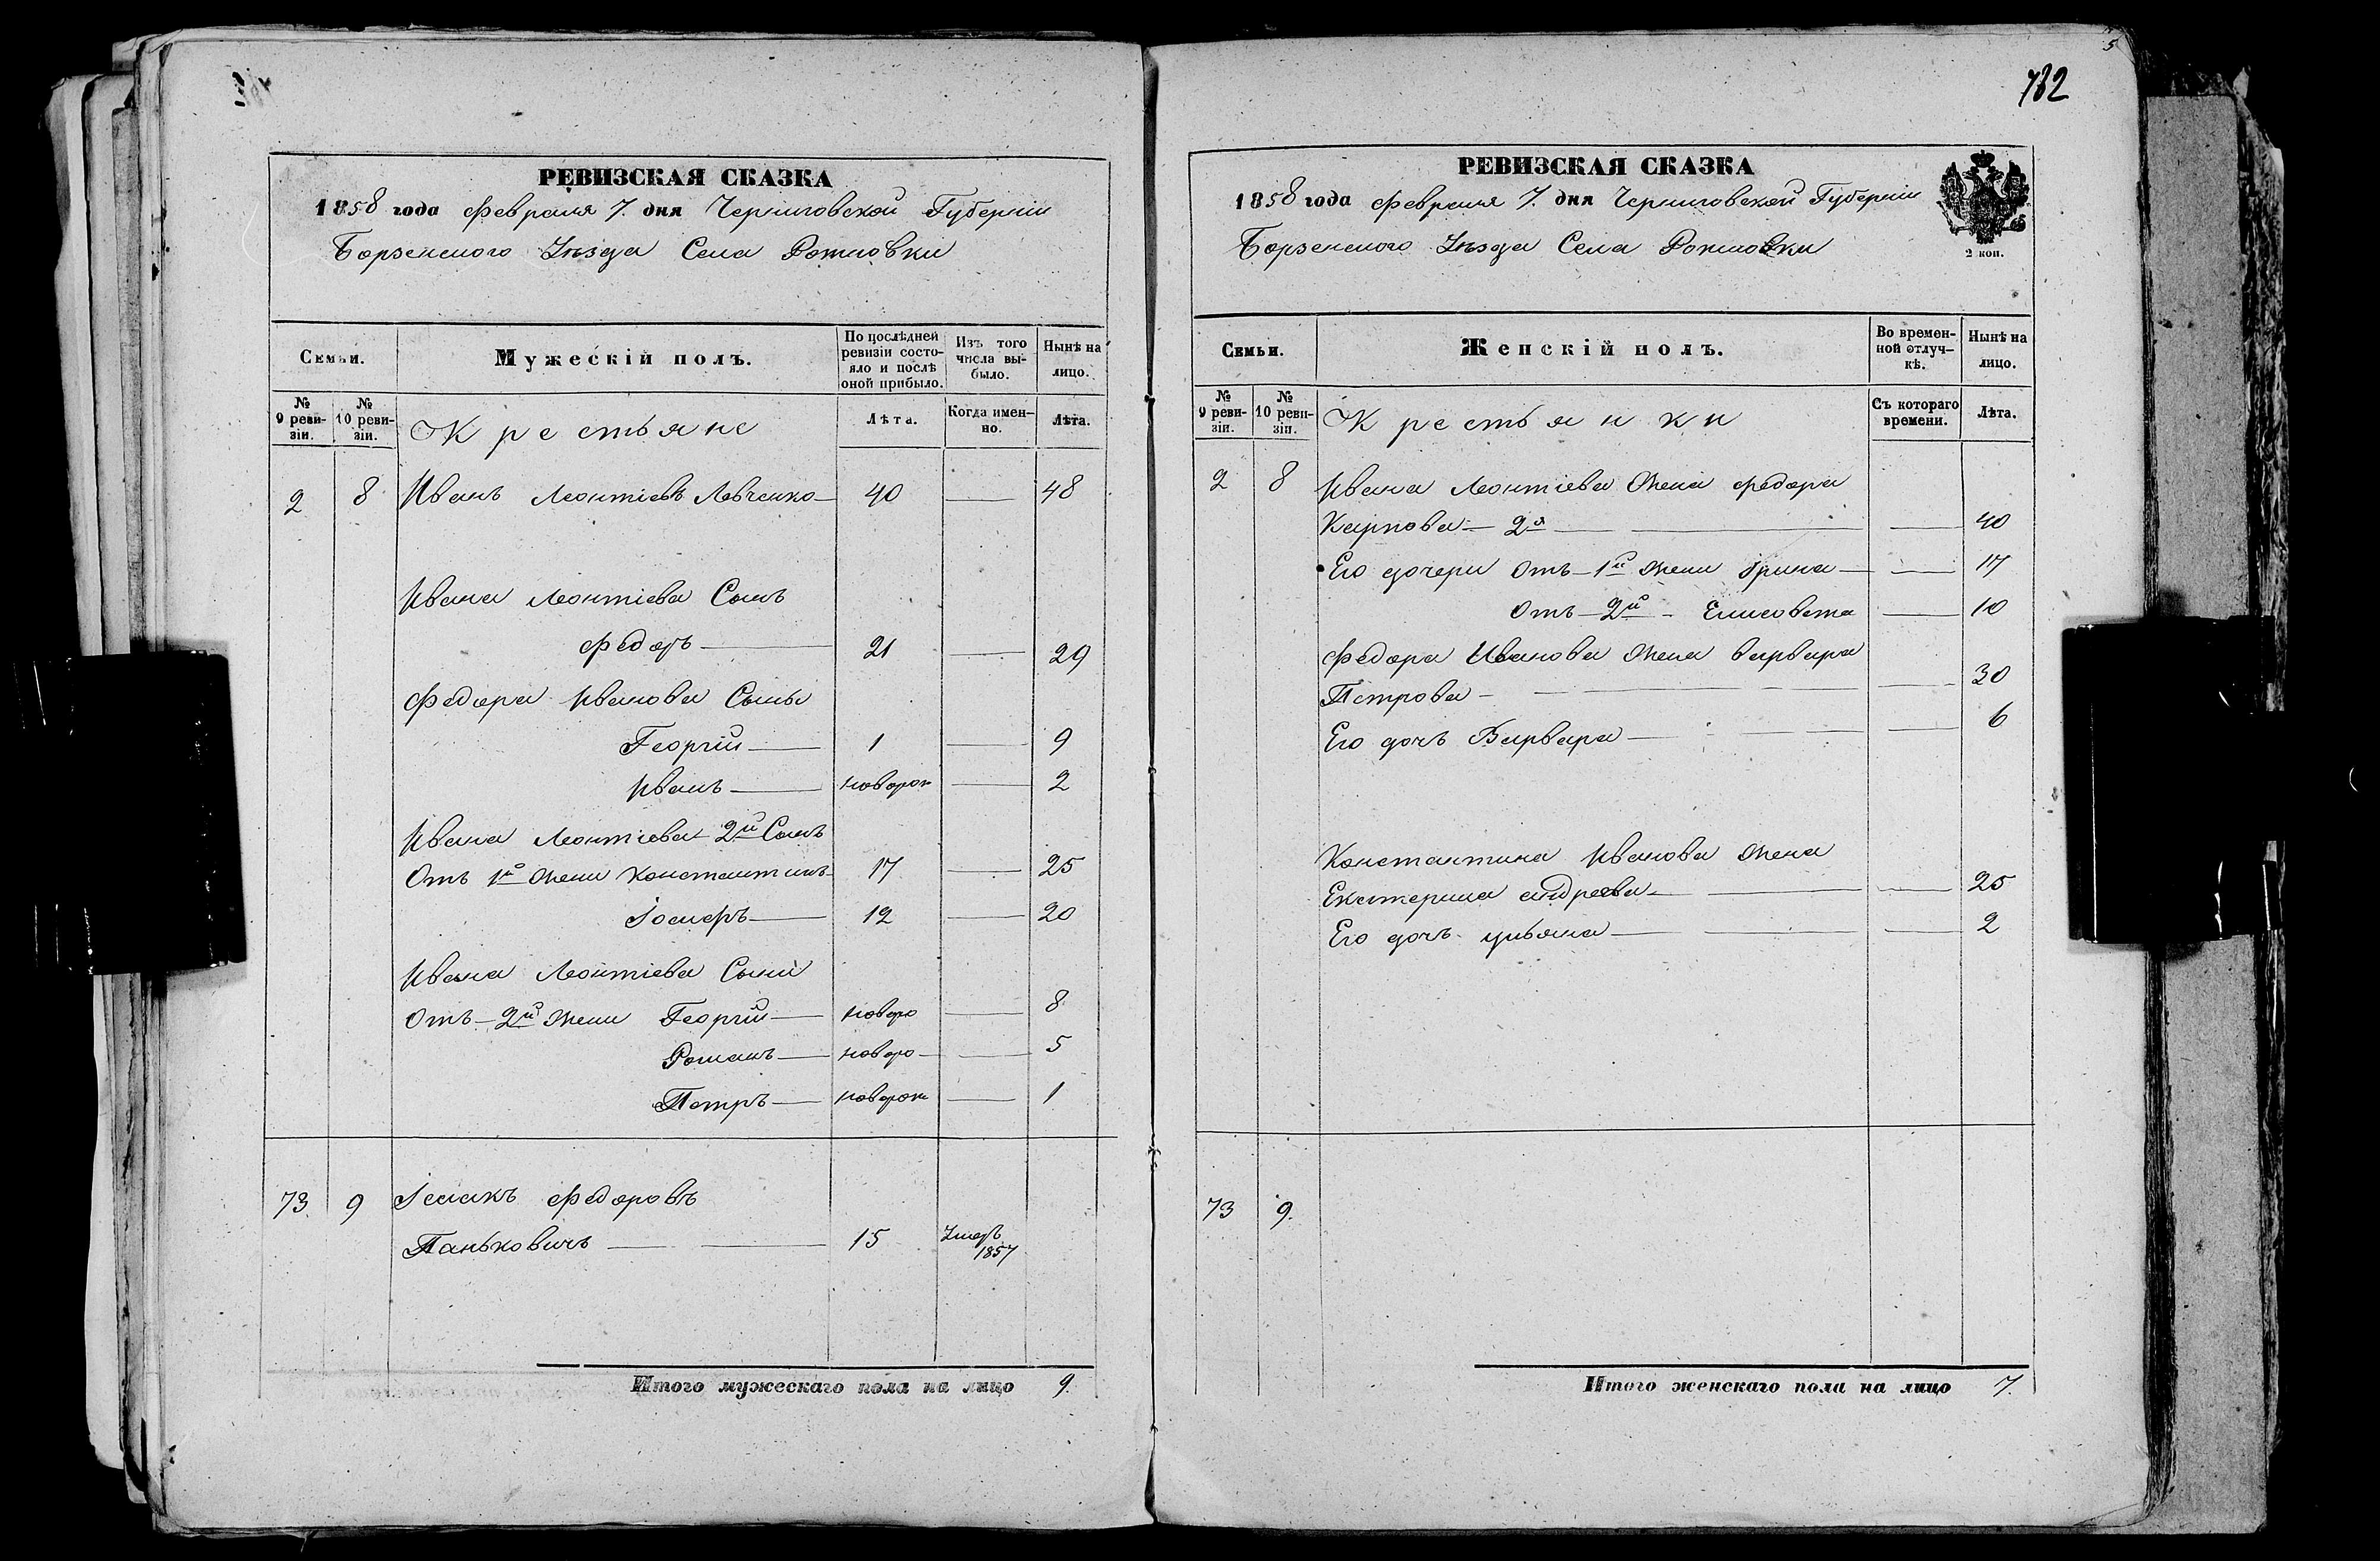 РЕВИЗСКАЯ СКАЗКА
1858 года Февраля 7. дня Черниговской Губерніи
Борзенского Уѣзда Села
Семьи.
Мужескій полъ.
По послѣдней ревизіи состояло и послѣ оной прибыло.
Изъ того числа выбыло.
Нынѣ на лицо.
№ 9 ревизіи.
№ 10 ревизіи.
Крестьяне
Лѣта.
Когда именно.
Лѣта.
2 8 Иванъ Леонтіевъ Левченко 40 — 48
Ивана Леонтіева Сынъ
Федоръ 21 — 29
Федора Иванова Сыны
Георгій 1 — 9
Иванъ новорож — 2
Ивана Леонтіева 2й Сынъ
Отъ 1й жены Константинъ 17 — 25
Іосифъ 12 — 20
Ивана Леонтіева Сыны
Отъ 2й жены Георгій новоро — 8
Романъ новоро — 5
Петръ новорож — 1
73 9 Исаакъ Федоровъ
Паньковичъ 15 Умеръ
1857
Итого мужескаго пола на лицо 9.
5
732
РЕВИЗСКАЯ СКАЗКА
1858 года Февраля 7. дня Черниговской Губерніи
Борзенского Уѣзда Села
2 коп.
Семьи.
Женскій полъ.
Во временной отлучкѣ.
Нынѣ на лицо.
№ 9 ревизіи.
№ 10 ревизіи.
Крестьянки
Съ котораго времени.
Лѣта.
2 8 Ивана Леонтіева жена Федора
Карпова 2я — 40
Его дочери отъ 1й жены Ирина — 17
отъ 2й Елисавета — 10
Федора Иванова жена Варвара
Петрова — 30
Его дочь Варвара — 6
Константина Иванова жена
Екатерина Андреева — 25
Его дочь Ульяна — 2
73 9.
Итого женскаго пола на лицо 7.